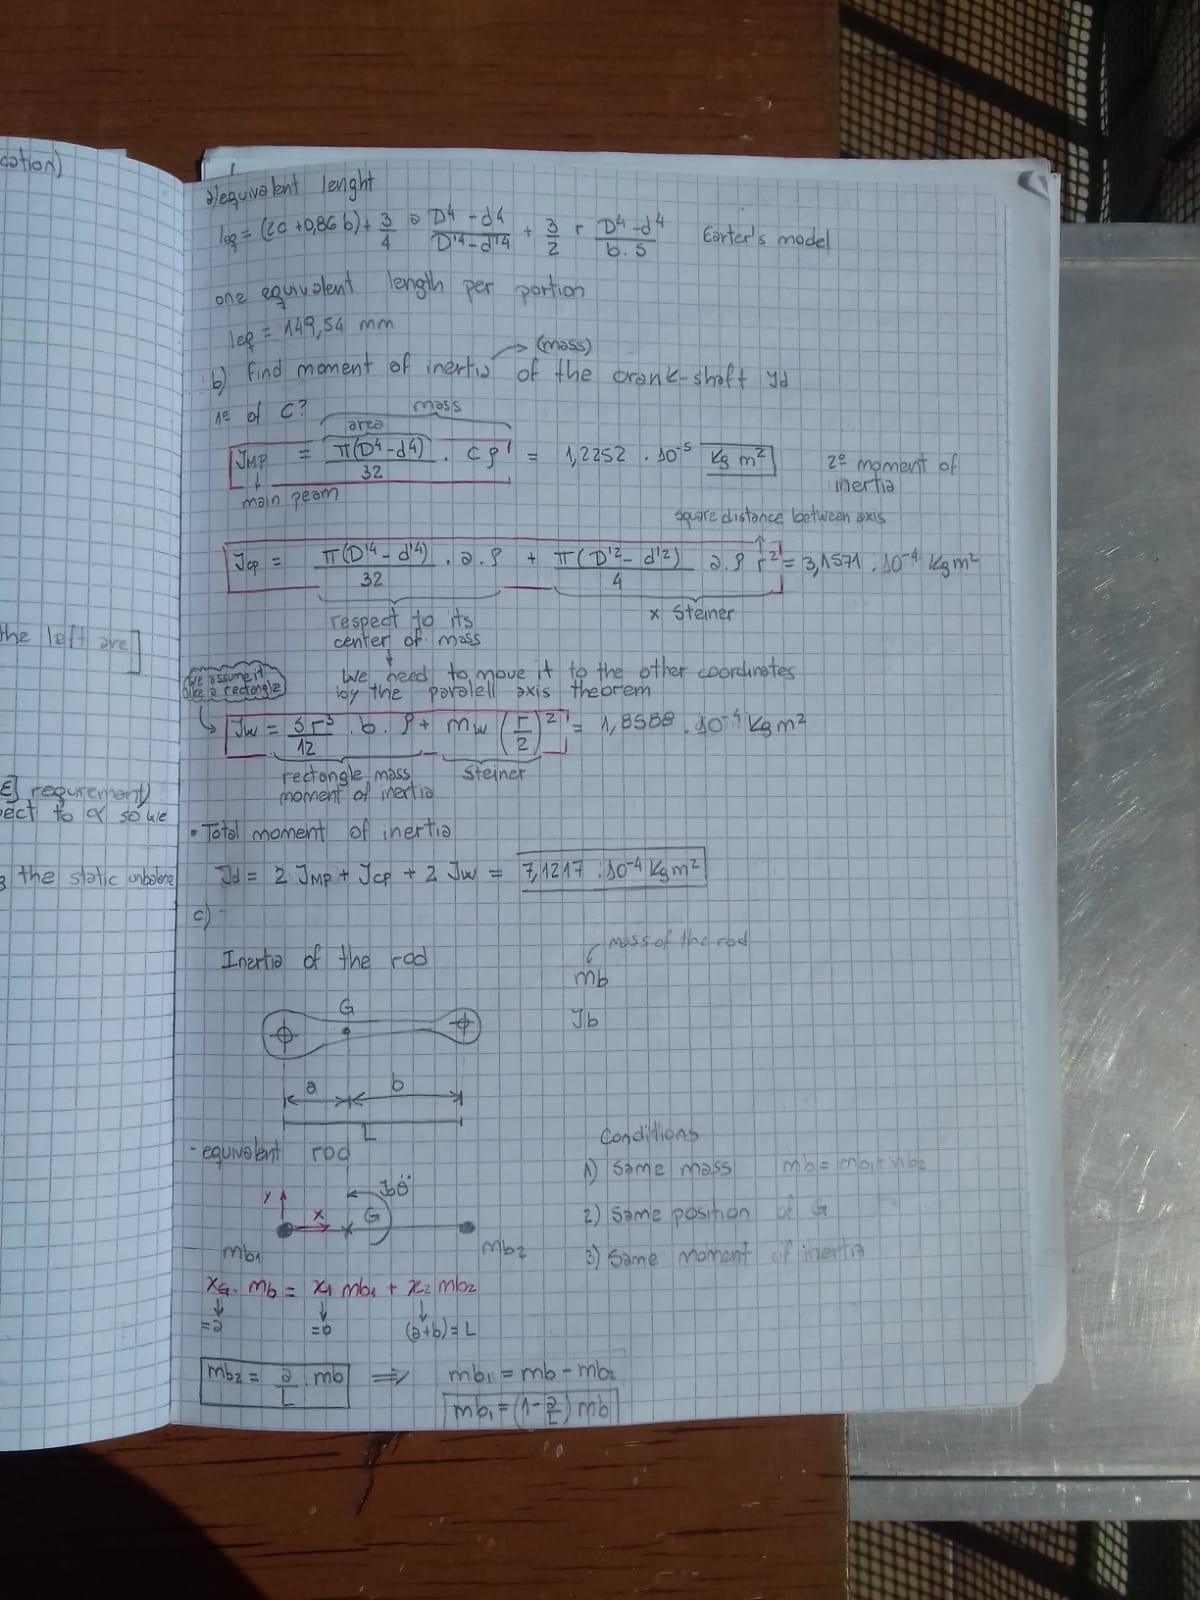 cation)
the left are]
E] requirement)
pect to α so we
the static unbalance
a) equivalent lenght
leq = (2c + 0,86 b) + 3/4 a (D⁴ - d⁴)/(D'⁴ - d'⁴) + 3/2 r (D⁴ - d⁴)/(b · s) Carter's model
one equivalent length per portion
leq = 149,54 mm
(mass)
b) Find moment of inertia of the crank-shaft Jd
nº of C?
mass
area
JMP = π(D⁴ - d⁴)/32 · c ρ = 1,2252 · 10⁻⁵ Kg m² 2º moment of inertia
main peam
square distance between axis
Jcp = π(D'⁴ - d'⁴)/32 · a · ρ + π(D'² - d'²)/4 a · ρ r² = 3,1571 · 10⁻⁴ Kg m²
respect to its center of mass
x Steiner
We assume it like a rectangle
We need to move it to the other coordinates
by the paralell axis theorem
Jw = s r³/12 · b · ρ + mw (r/2)² = 1,8588 · 10⁻⁴ Kg m²
rectangle mass moment of inertia
Steiner
• Total moment of inertia
Jd = 2 JMP + Jcp + 2 Jw = 7,1217 · 10⁻⁴ Kg m²
c)
Inertia of the rod
mass of the rod
mb
Jb
G
a b
L
- equivalent rod
y
x
G
Jθ̈
mb1
mb2
Conditions
1) Same mass mb = mb1 + mb2
2) Same position of G
3) Same moment of inertia
xG · mb = x1 mb1 + x2 mb2
=a =0 (a+b)=L
mb2 = a/L · mb ⇒ mb1 = mb - mb2
mb1 = (1 - a/L) mb